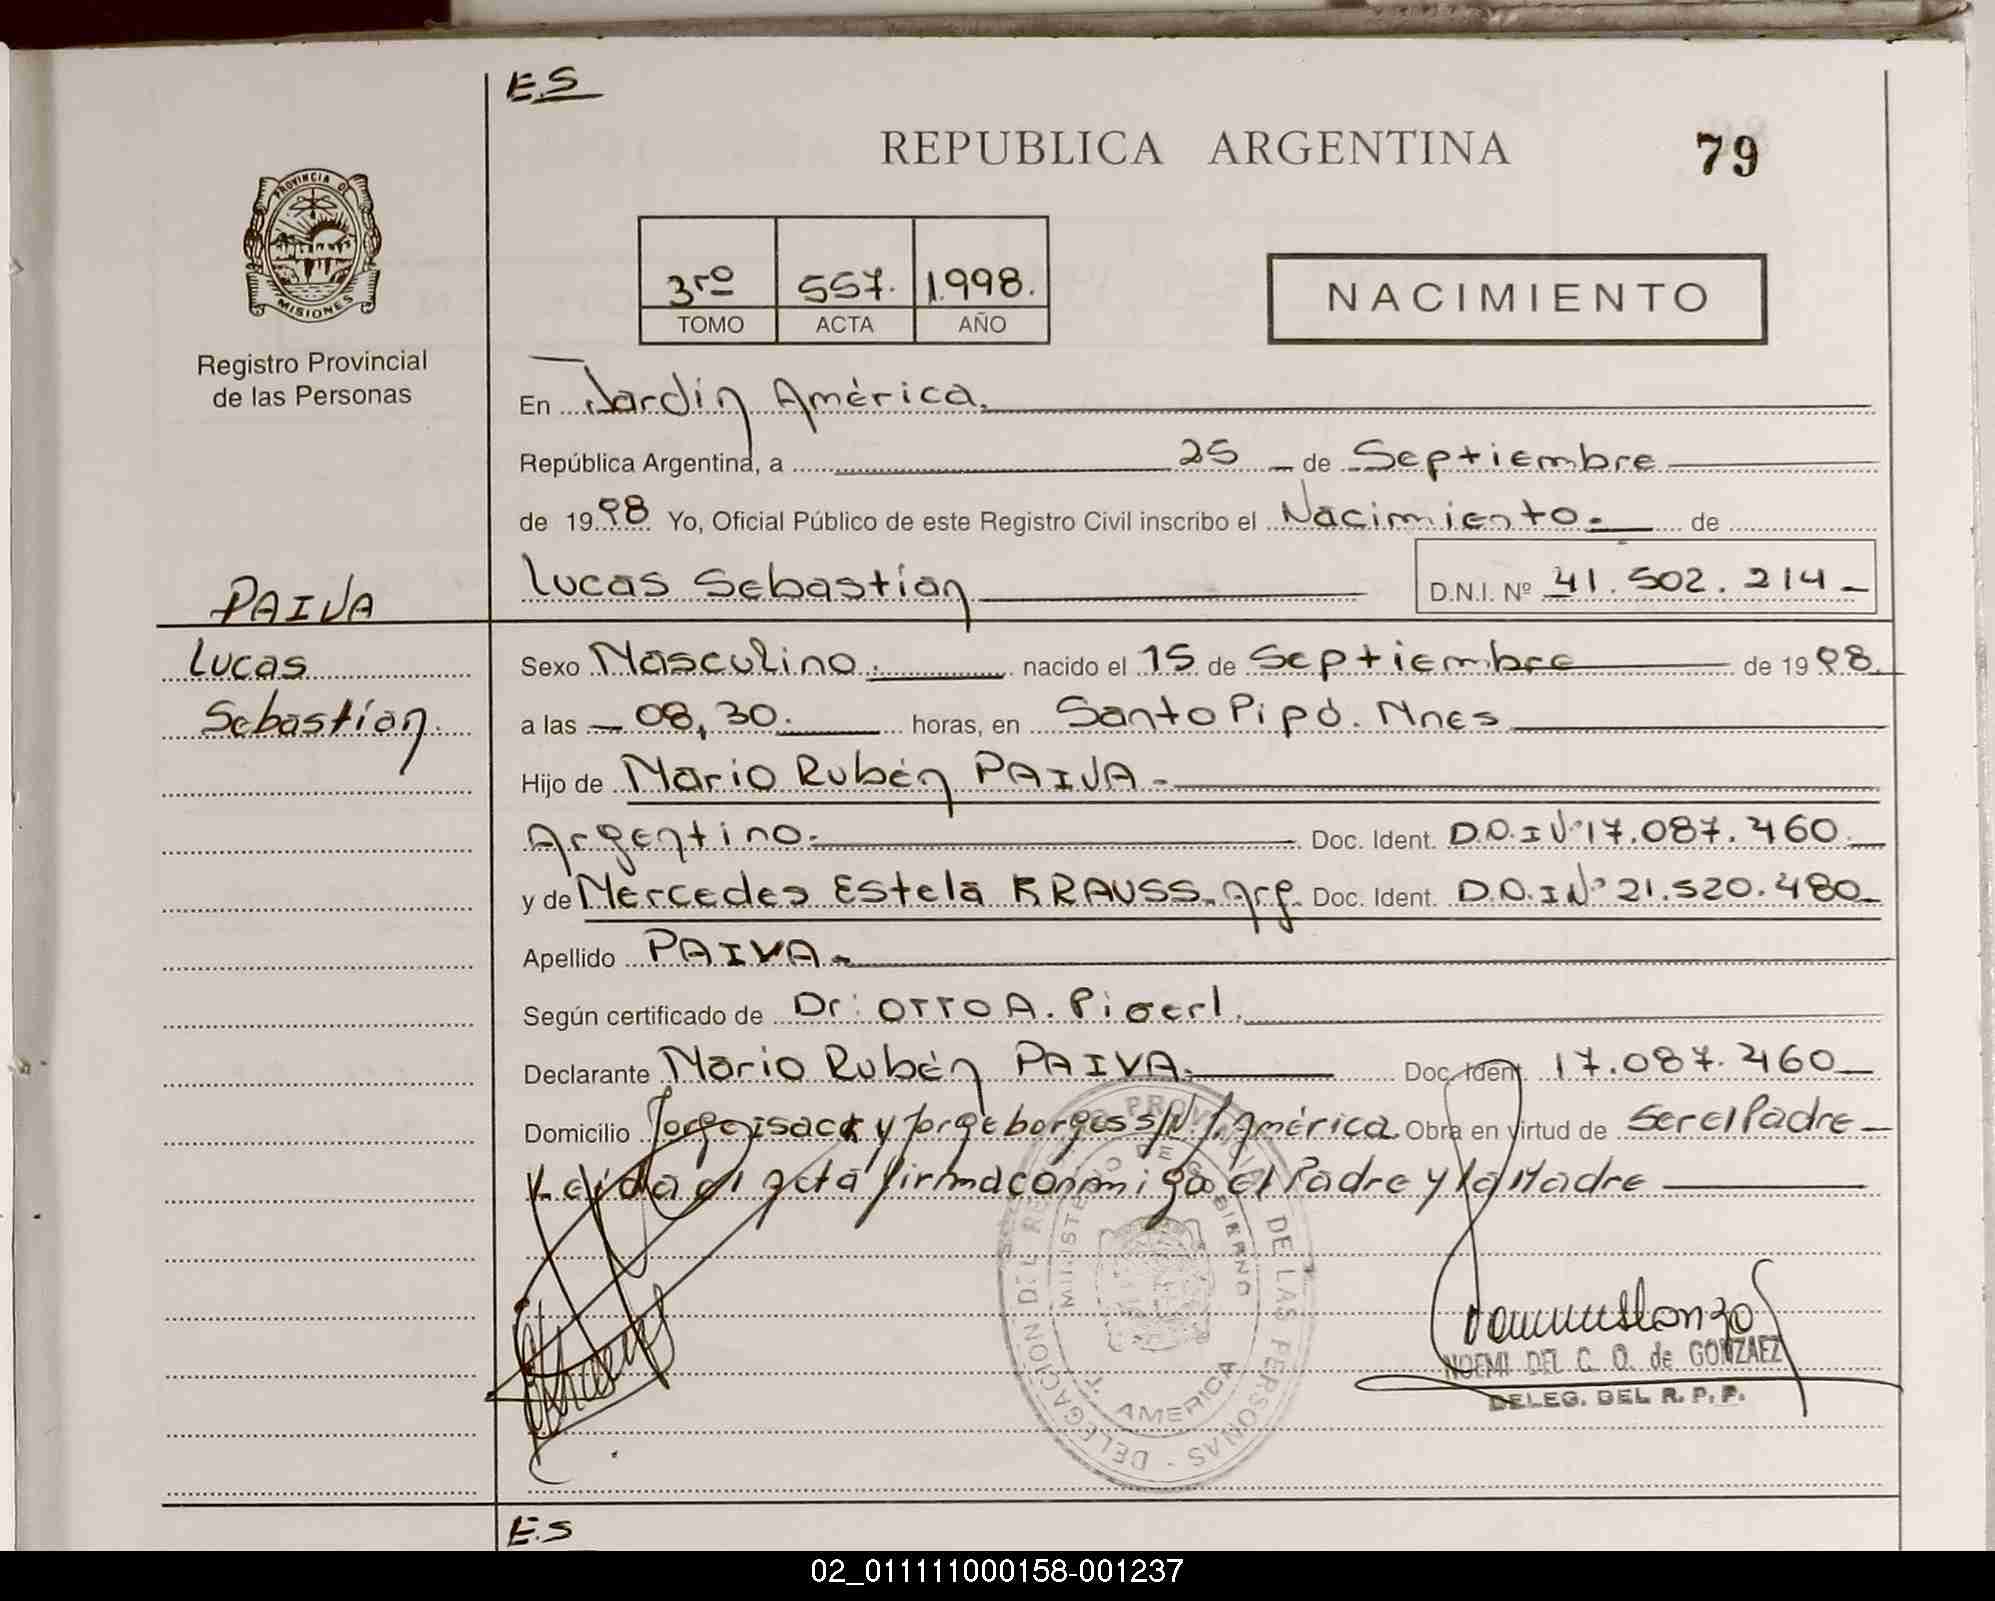 E.S
REPUBLICA ARGENTINA
79
PROVINCIA DE
MISIONES
Registro Provincial
de las Personas
3ro 557. 1.998.
TOMO ACTA AÑO
NACIMIENTO
En Jardín América.
República Argentina, a 25 de Septiembre
de 1998 Yo, Oficial Público de este Registro Civil inscribo el Nacimiento.- de
Lucas Sebastían D.N.I. Nº 41.502.214-
PAIVA
Lucas
Sebastían.
Sexo Masculino.- nacido el 15 de Septiembre de 1998.
a las - 08,30. horas, en Santo Pipó. Mnes
Hijo de Mario Rubén PAIVA-
Argentino.- Doc. Ident. D.N.I Nº 17.087.460.
y de Mercedes Estela KRAUSS. Arg. Doc. Ident. D.N.I Nº 21.520.480-
Apellido PAIVA-
Según certificado de Dr: OTTO A.
Declarante Mario Rubén PAIVA. Doc. Ident. 17.087.460
Domicilio Jorge isack y Jorge borges s/N. J. América. Obra en virtud de Ser el Padre -
Leida el acta firma conmigo el Padre y la Madre
DELEGACION DEL REGISTRO PROVINCIAL DE LAS PERSONAS
MINISTERIO DE GOBIERNO
J. AMERICA
NOEMI DEL C. O. de GONZAEZ
DELEG. DEL R. P. P.
E.S
02_011111000158-001237